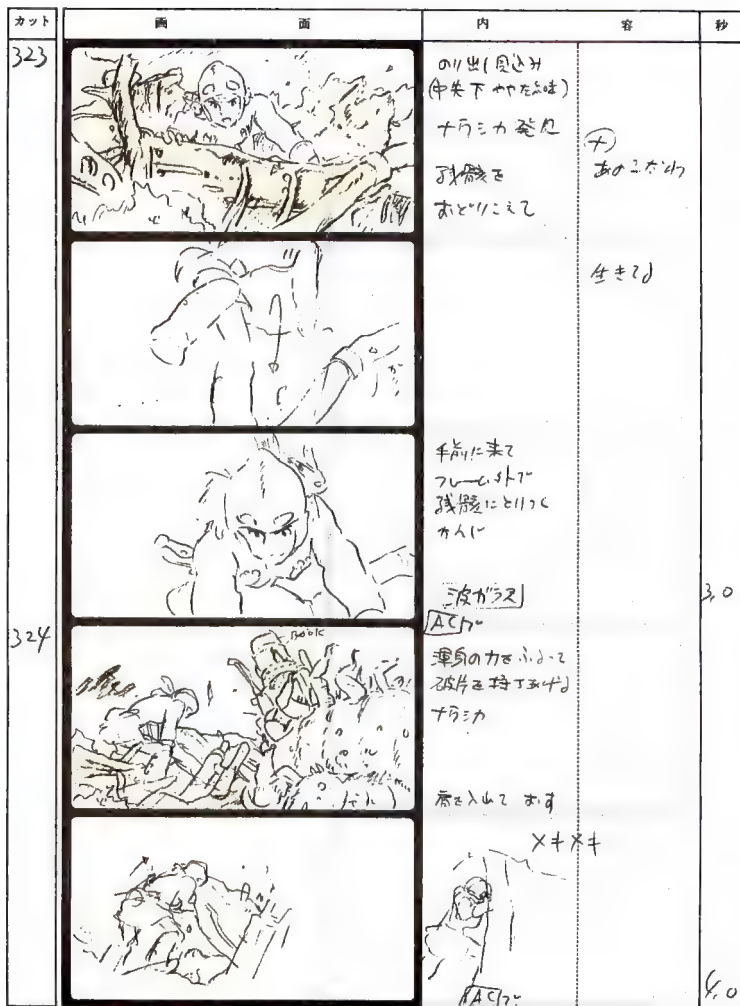 カット
画面
内容
秒
323
のり出し見込み
(中央下やや左 )
ナウシカ 発見
残骸を
おどりこえて
ナ
あの だわ
生きてる
手前に来て
フレーム外で
残骸にとりつく
カンバ
波ガラス
3.0
ACで
324
BOOK
渾身の力をふるって
破片を持ち上げる
ナウシカ
肩を入れて おす
メキメキ
ACで
4.0